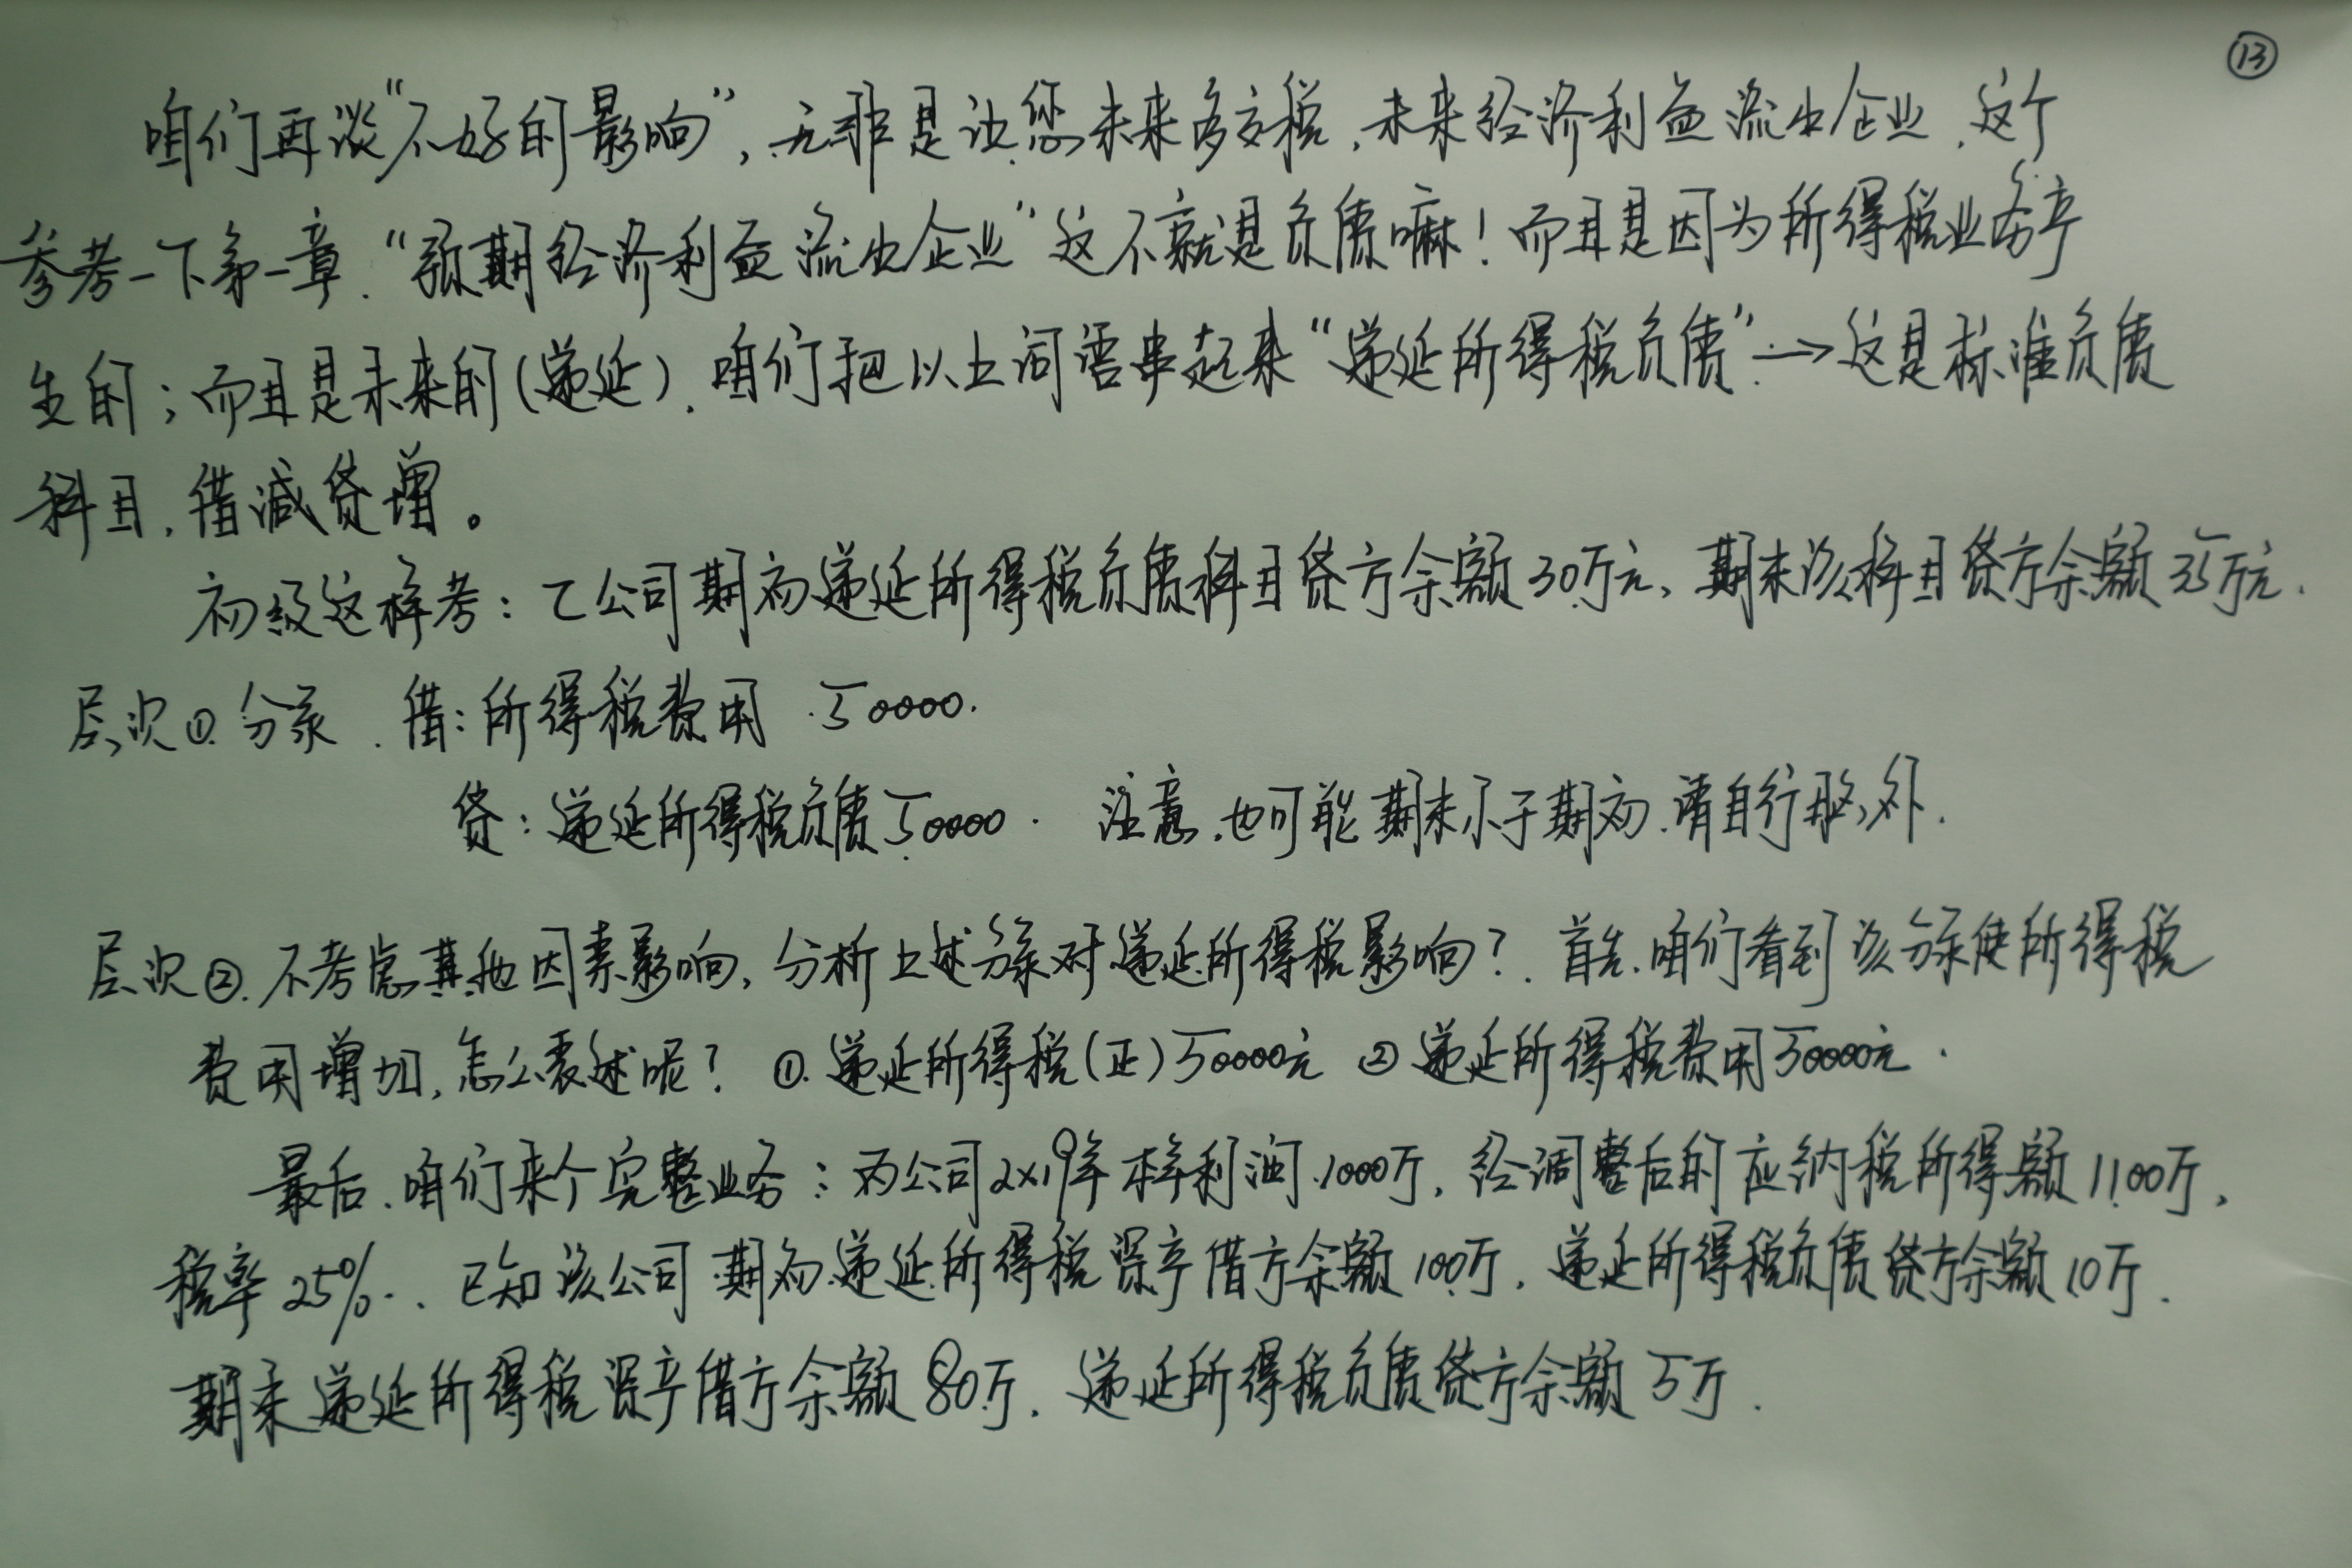 ⑬
咱们再谈“不好的影响”,无非是让您未来多交税,未来经济利益流出企业,这个
参考一下第一章.“预期经济利益流出企业”这不就是负债嘛!而且是因为所得税业务产
生的;而且是未来的(递延).咱们把以上词语串起来“递延所得税负债”→这是标准负债
科目,借减贷增。
初级这样考:乙公司期初递延所得税负债科目贷方余额30万元,期末该科目贷方余额35万元.
层次①.分录.借:所得税费用 50000.
贷:递延所得税负债50000. 注意.也可能期末小于期初.请自行脑补.
层次②.不考虑其他因素影响,分析上述分录对递延所得税影响?.首先.咱们看到该分录使所得税
费用增加,怎么表述呢? ①.递延所得税(正)50000元 ②递延所得税费用50000元.
最后.咱们来个完整业务:丙公司2×19年本年利润1000万,经调整后的应纳税所得额1100万,
税率25%.已知该公司期初递延所得税资产借方余额100万,递延所得税负债贷方余额10万.
期末递延所得税资产借方余额80万.递延所得税负债贷方余额5万.